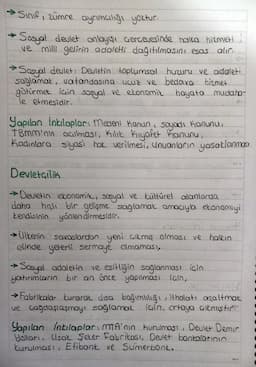 → Sınıf, zümre ayrımcılığı yoktur.
→ Sosyal devlet anlayışı çerçevesinde halka hizmeti
ve milli gelirin adaletli dağıtılmasını esas alır.
→ Sosyal devlet: Devletin toplumsal huzuru ve adaleti
sağlamak, vatandaşına ucuz ve bedava hizmet
götürmek için sosyal ve ekonomik hayata müdaha-
le etmesidir.
Yapılan İnkılaplar: Medeni Kanun, Soyadı Kanunu,
TBMM'nin açılması, Kılık Kıyafet Kanunu,
Kadınlara siyasi hak verilmesi, Unvanların yasaklanması
Devletçilik
→ Devletin ekonomik, sosyal ve kültürel alanlarda
daha hızlı bir gelişme sağlamak amacıyla ekonomiyi
kendisinin yönlendirmesidir.
→ Ülkenin savaşlardan yeni çıkmış olması ve halkın
elinde yeterli sermaye olmaması,
→ Sosyal adaletin ve eşitliğin sağlanması için
yatırımların bir an önce yapılması için,
→ Fabrikalar kurarak dışa bağımlılığı, ithalatı azaltmak
ve çağdaşlaşmayı sağlamak için ortaya çıkmıştır.
Yapılan İnkılaplar: MTA'nın kurulması, Devlet Demir
Yolları, Uşak Şeker Fabrikası, Devlet bankalarının
kurulması, Etibank ve Sümerbank.